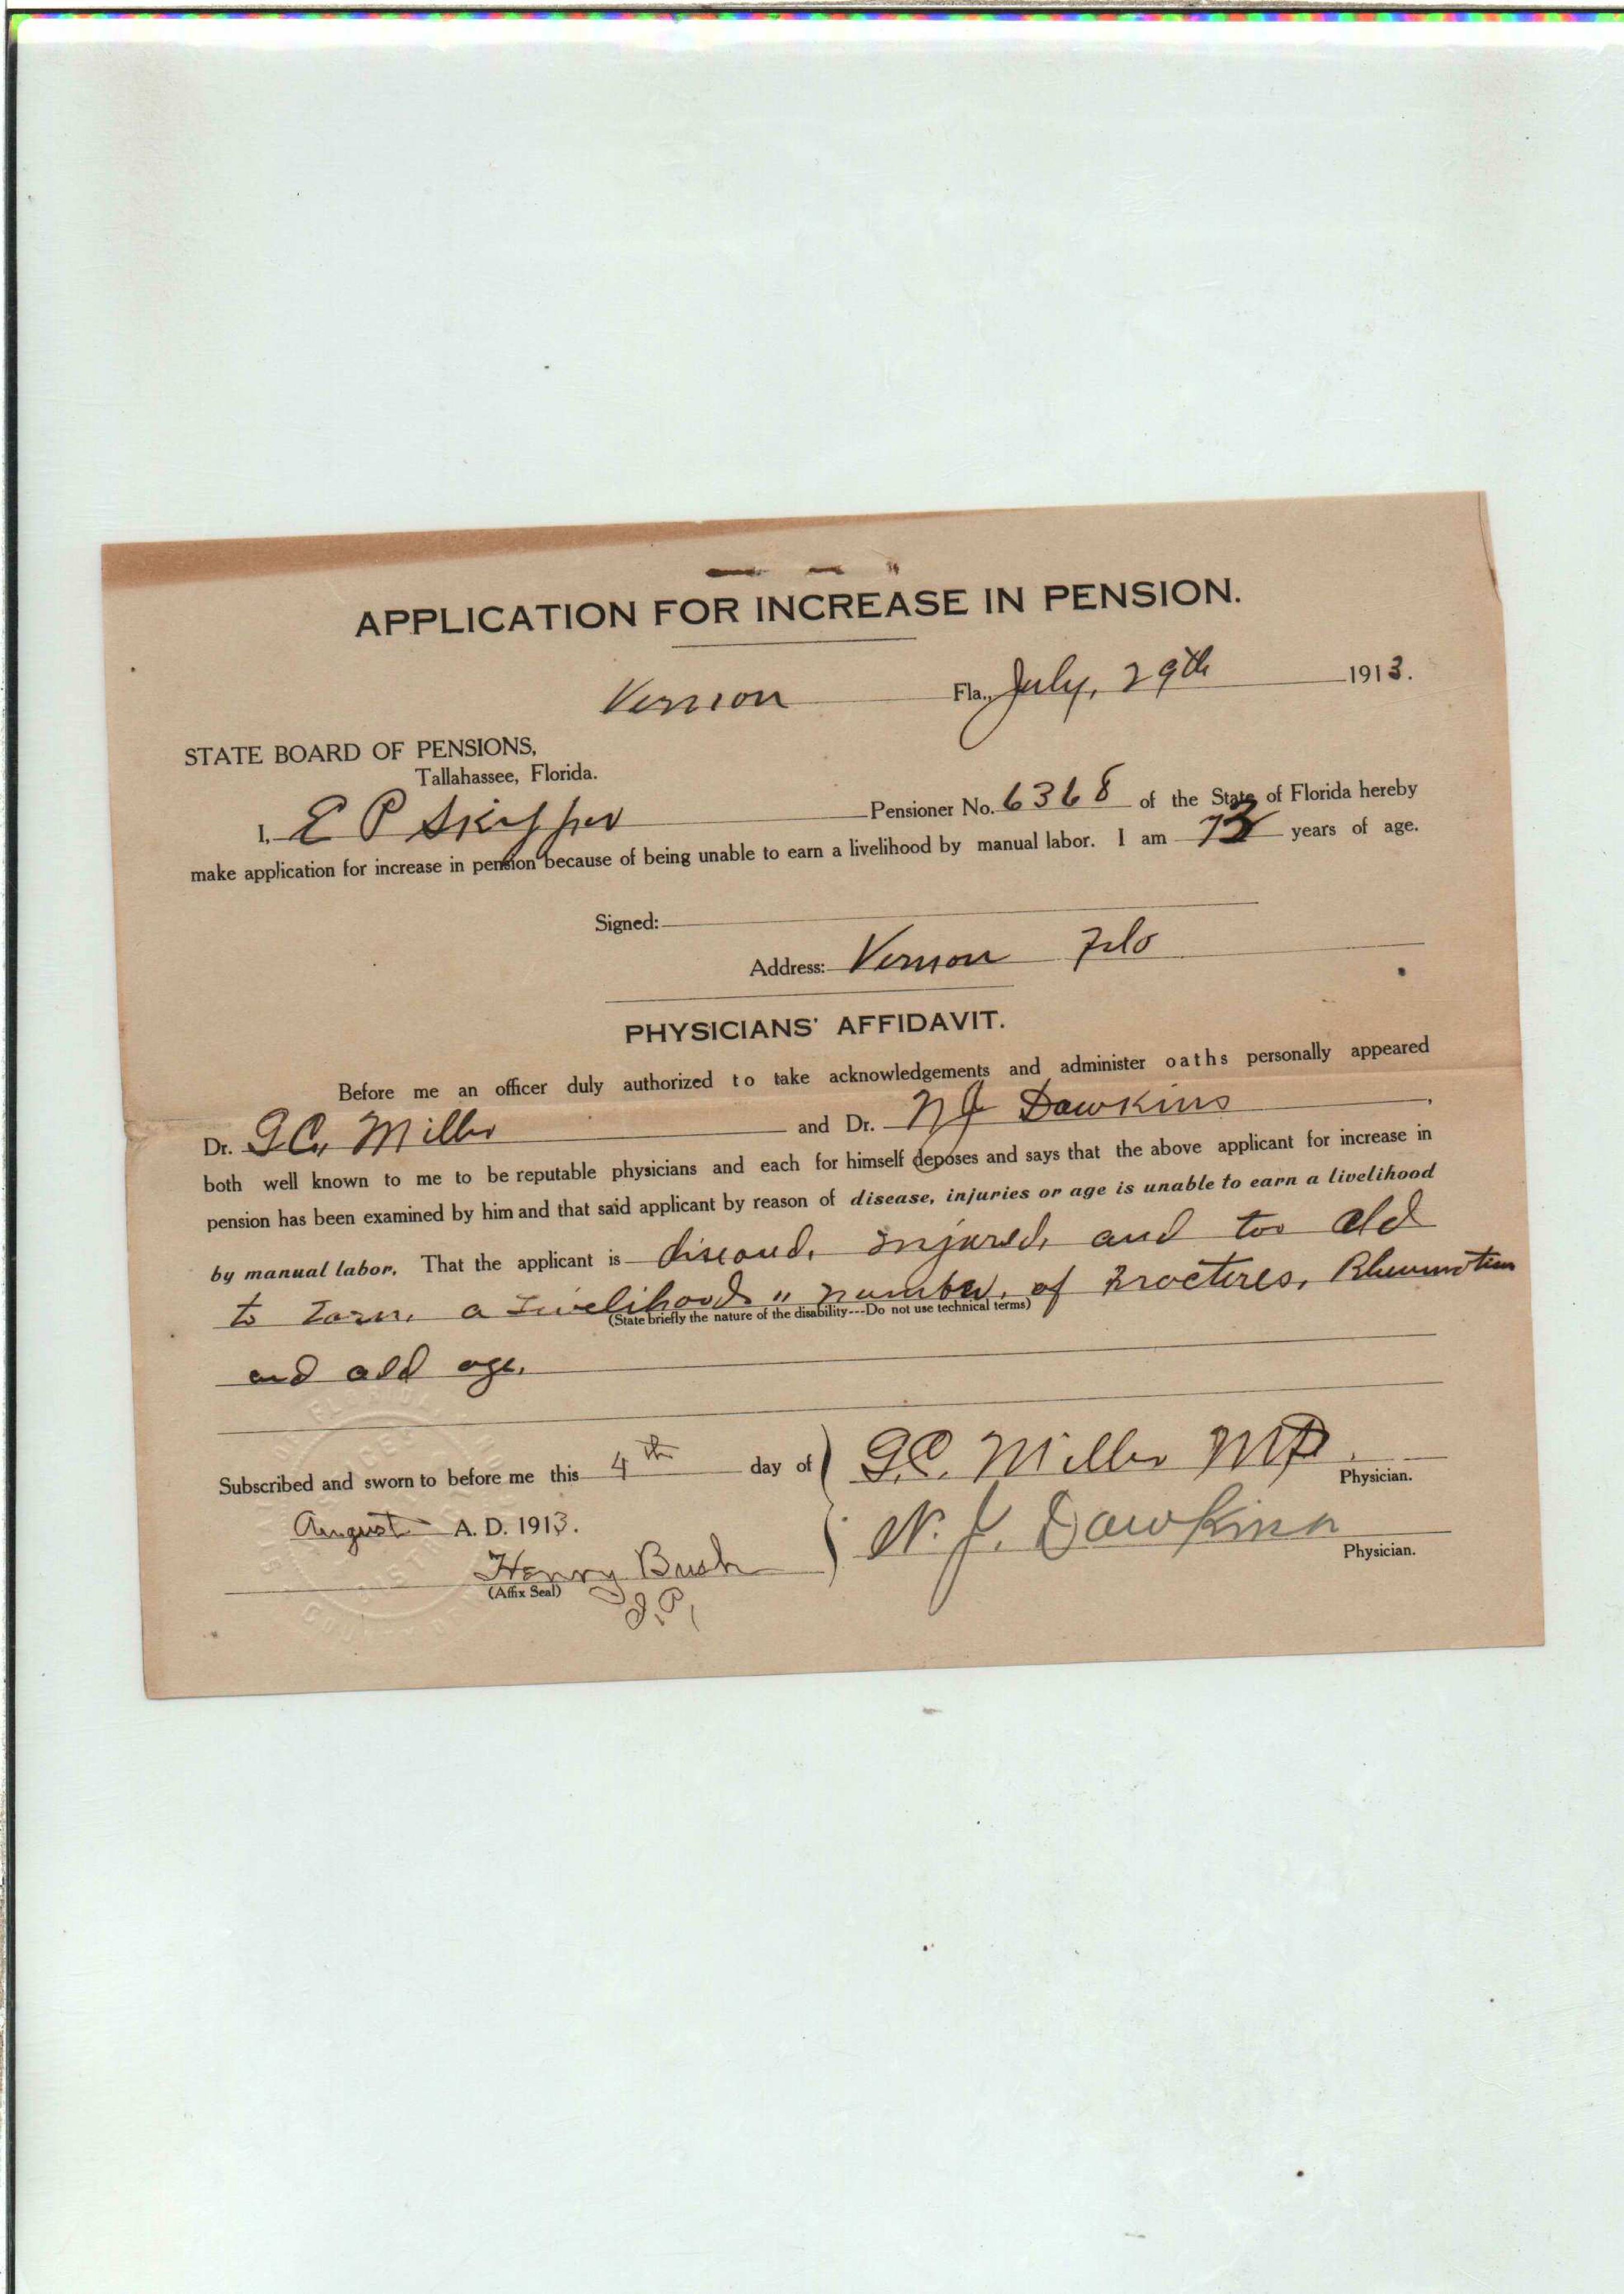 APPLICATION FOR INCREASE IN PENSION.
Vernon Fla., July, 29th 1913.
STATE BOARD OF PENSIONS,
Tallahassee, Florida.
I, E P Skipper Pensioner No. 6368 of the State of Florida hereby
make application for increase in pension because of being unable to earn a livelihood by manual labor. I am 73 years of age.
Signed:
Address: Vernon Fla
PHYSICIANS' AFFIDAVIT.
Before me an officer duly authorized to take acknowledgements and administer oaths personally appeared
Dr. G.C. Miller and Dr. N J Dawkins
both well known to me to be reputable physicians and each for himself deposes and says that the above applicant for increase in
pension has been examined by him and that said applicant by reason of disease, injuries or age is unable to earn a livelihood
by manual labor. That the applicant is diseased, injured, and too old
to earn, a livelihood, number, of fractures, Rheumatism
(State briefly the nature of the disability---Do not use technical terms)
and old age.
Subscribed and sworn to before me this 4th day of G.C. Miller MD.
Physician.
August A. D. 1913. N. J. Dawkins
Physician.
Henry Bush
(Affix Seal) J.P.